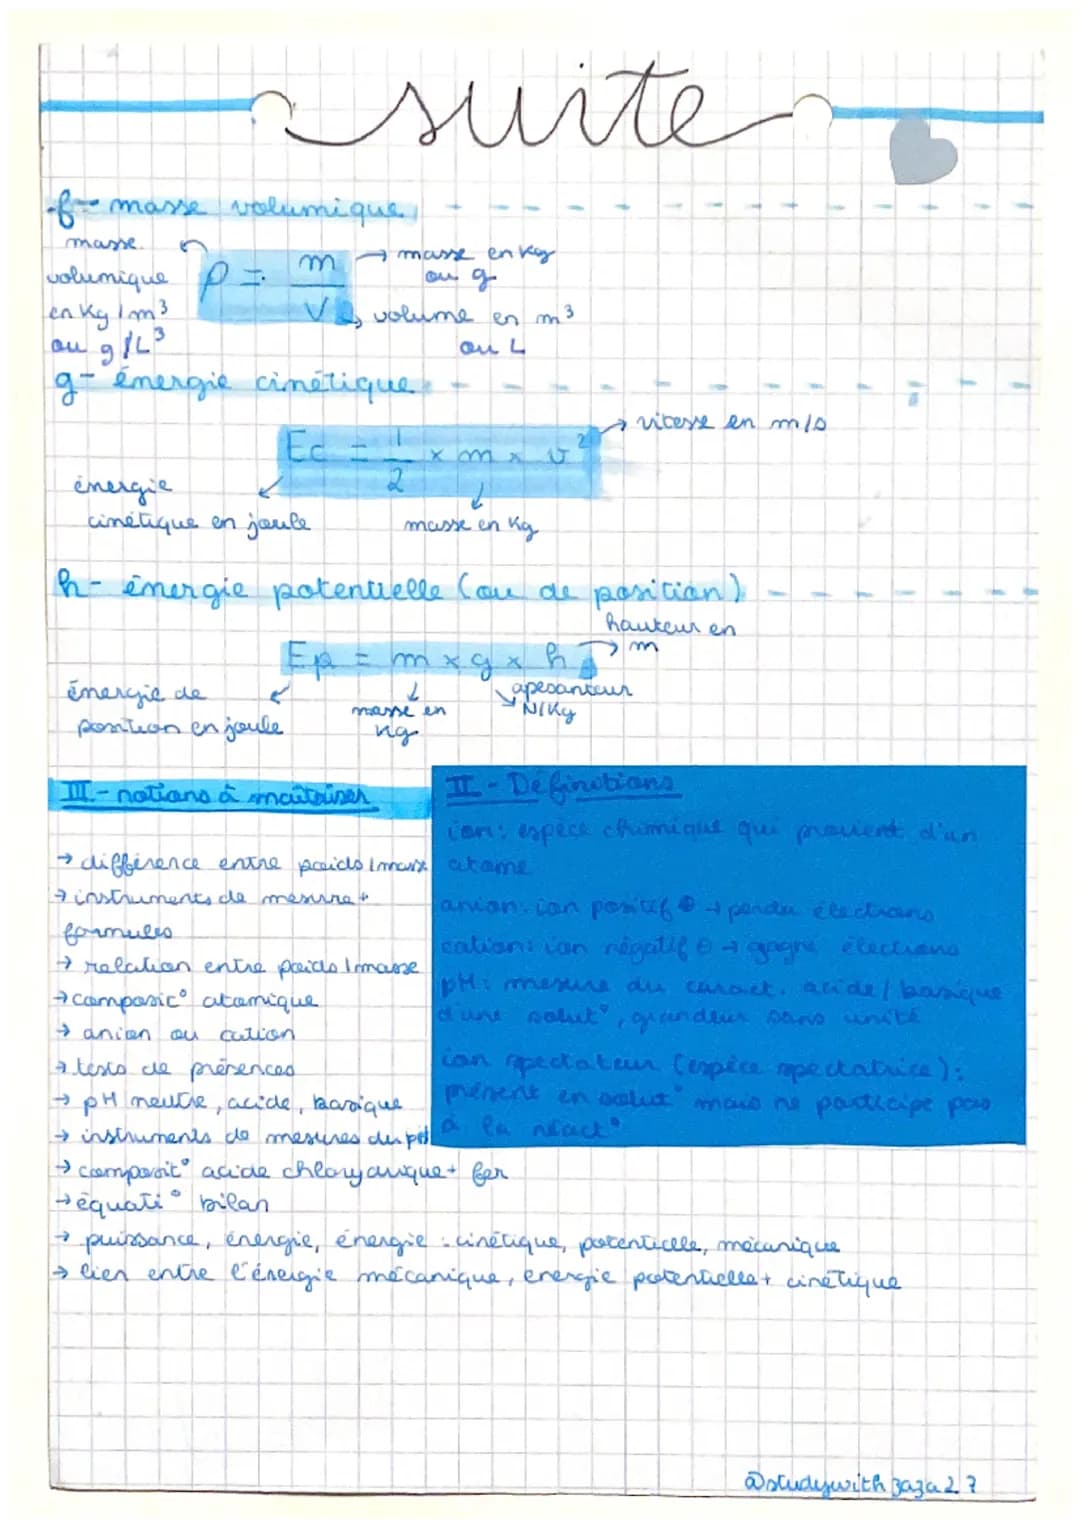 suite
f- masse volumique
masse
volumique
en Kg/m³
ou g/L³
ρ = m/V
→ masse en Kg
ou g
→ volume en m³
ou L
g- énergie cinétique
Ec = 1/2 × m × v²
→ vitesse en m/s
énergie
cinétique en joule
masse en Kg
h- énergie potentielle (ou de position)
Ep = m × g × h
hauteur en
m
énergie de
position en joule
masse en
Kg
apesanteur
N/Kg
III.- notions à maîtriser
→ différence entre poids/masse
→ instruments de mesure +
formules
→ relation entre poids/masse
→ composic° atomique
→ anion ou cation
→ tests de présences
→ pH neutre, acide, basique
→ instruments de mesures du pH
→ composit° acide chlorydrique + fer
→ équati° bilan
→ puissance, énergie, énergie : cinétique, potentielle, mécanique
→ lien entre l'énergie mécanique, énergie potentielle + cinétique
II - Définitions
ion: espèce chimique qui provient d'un
atome
anion: ion positif ⊕ → perdu électrons
cation: ion négatif ⊖ → gagné électrons
pH: mesure du caract. acide/basique
d'une solut°, grandeur sans unité
ion spectateur (espèce spectatrice):
présent en solut° mais ne participe pas
à la réact°
@studywithzaza27